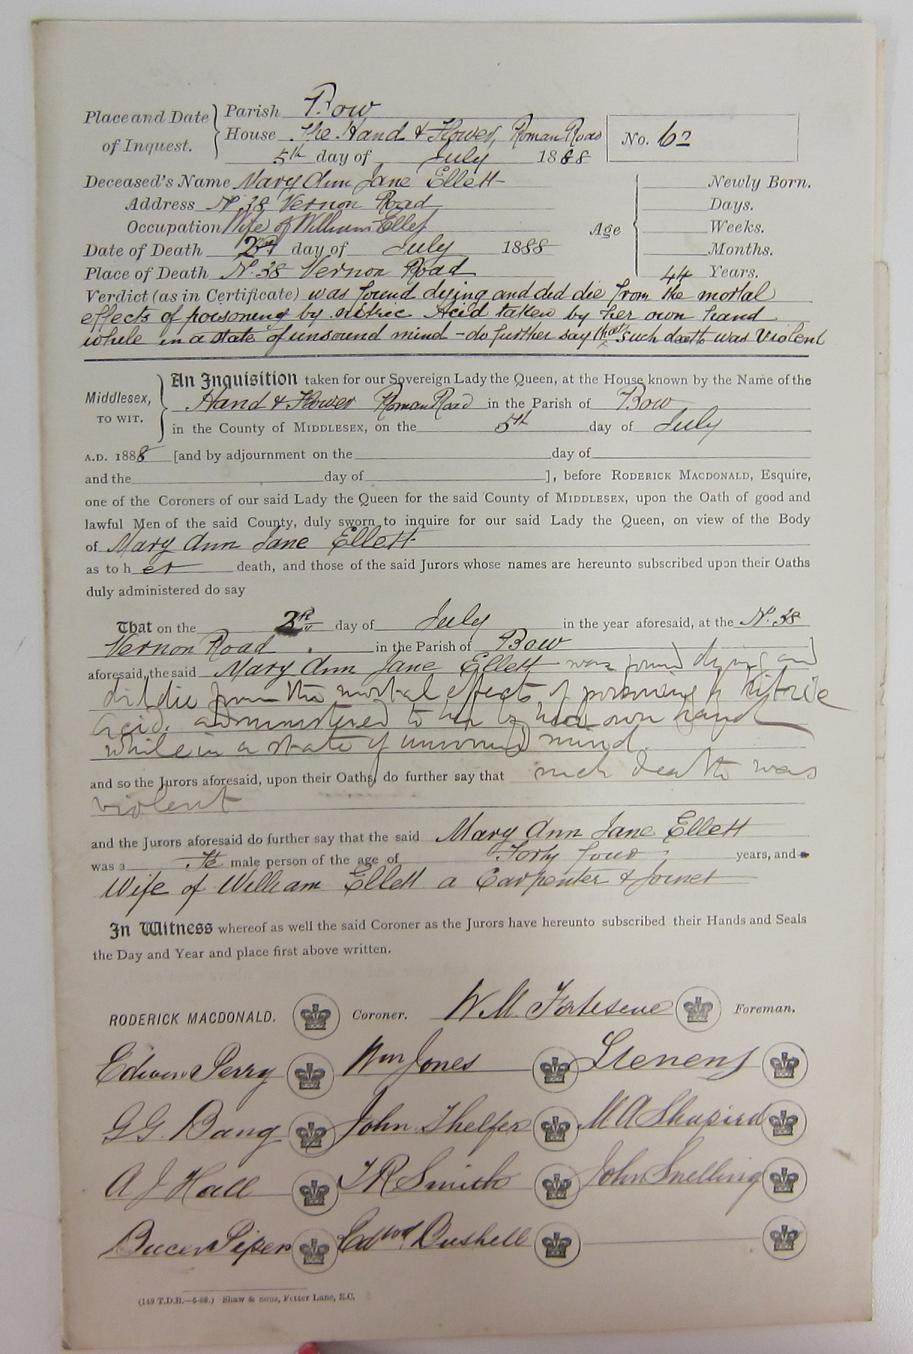 Place and Date of Inquest.
Parish Bow
House The Hand & Flower, Roman Road
5th day of July 1888
No. 62
Deceased's Name Mary Ann Jane Ellett
Address No. 38 Vernon Road
Occupation Wife of William Ellett
Date of Death 2nd day of July 1888
Place of Death No. 38 Vernon Road
Age
Newly Born.
Days.
Weeks.
Months.
44 Years.
Verdict (as in Certificate) was found dying and did die from the mortal
effects of poisoning by Nitric Acid taken by her own hand
while in a state of unsound mind - do further say that such death was Violent
Middlesex, TO WIT.
An Inquisition taken for our Sovereign Lady the Queen, at the House known by the Name of the
Hand & Flower Roman Road in the Parish of Bow
in the County of MIDDLESEX, on the 5th day of July
A.D. 1888 [and by adjournment on the day of
and the day of ], before RODERICK MACDONALD, Esquire,
one of the Coroners of our said Lady the Queen for the said County of MIDDLESEX, upon the Oath of good and
lawful Men of the said County, duly sworn to inquire for our said Lady the Queen, on view of the Body
of Mary Ann Jane Ellett
as to h er death, and those of the said Jurors whose names are hereunto subscribed upon their Oaths
duly administered do say
That on the 2nd day of July in the year aforesaid, at the No. 38
Vernon Road in the Parish of Bow
aforesaid the said Mary Ann Jane Ellett was found dying and
did die from the mortal effects of poisoning by Nitric
acid, administered to her by her own hand
while in a state of unsound mind
and so the Jurors aforesaid, upon their Oaths, do further say that such death was
violent
and the Jurors aforesaid do further say that the said Mary Ann Jane Ellett
was a Fe male person of the age of Forty four years, and a
Wife of William Ellett a Carpenter & Joiner
In Witness whereof as well the said Coroner as the Jurors have hereunto subscribed their Hands and Seals
the Day and Year and place first above written.
RODERICK MACDONALD. Coroner. W. M. Fortescue Foreman.
Edwin Perry Wm Jones Stevens
G G. Bang John M A
A J Hall T R Smith John Snelling
Piper Edwd
(149 T.D.B.—5-88.) Shaw & sons, Fetter Lane, E.C.